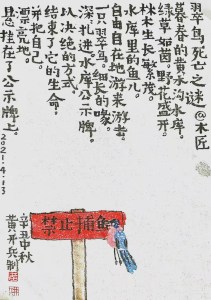 翠鸟死亡之谜@木匠
暮春的黄水沟水库。
绿草如茵。野花盛开。
林木生长繁茂。
水库里的鱼儿。
自由自在地游来游去。
一只翠鸟。细长的喙。
深扎进水库公示牌。
以决绝的方式。
结束了它的生命。
并把自己。
漂亮地。
悬挂在了公示牌上。
2021.4.13
禁止捕鱼
辛丑中秋
黄开兵制